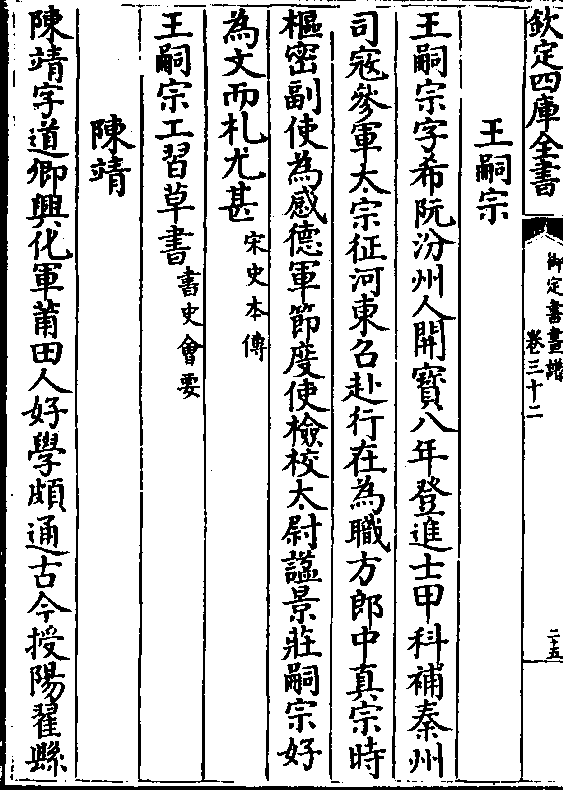 欽定四庫全書
御定書畫譜
卷三十二
二十五
王嗣宗
王嗣宗字希阮汾州人開寶八年登進士甲科補秦州
司寇參軍太宗征河東召赴行在為職方郎中真宗時
樞密副使為感德軍節度使檢校太尉諡景莊嗣宗好
為文而札尤甚宋史本傳
王嗣宗工習草書書史會要
陳靖
陳靖字道卿興化軍莆田人好學頗通古今授陽翟縣